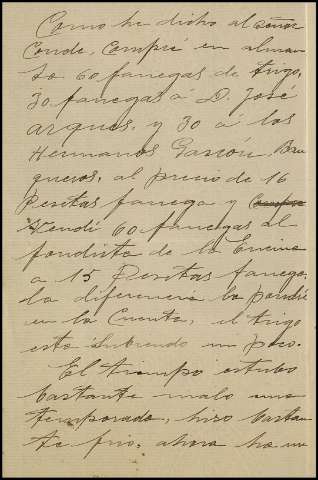 Como he dicho al señor
Conde, Compré en alman
sa 60 fanegas de trigo,
30 fanegas á D. José
arques, y 30 á los
Hermanos Gascón, Bru
queros, al precio de 16
Pesetas fanega y Compre
Vendi 60 fanegas al
fondista de la Encina
a 15 Pesetas fanega,
la diferencia la pondré
en la Cuenta, el trigo
esta subiendo un poco.
El tiempo estubo
bastante malo una
temporada, hizo bastan
te frio, ahora ha